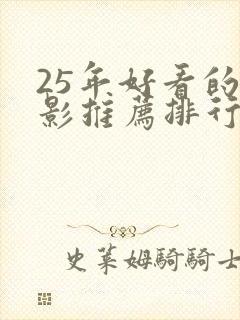 25年好看的
影推薦排行
史莱姆騎騎士